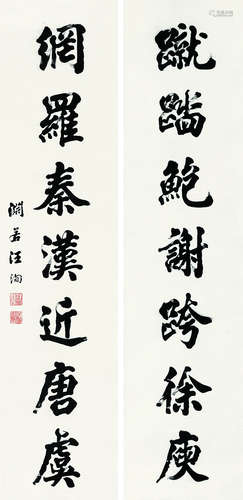 蹴踏鮑謝跨徐庾
網羅秦漢近唐虞
淵若汪洵